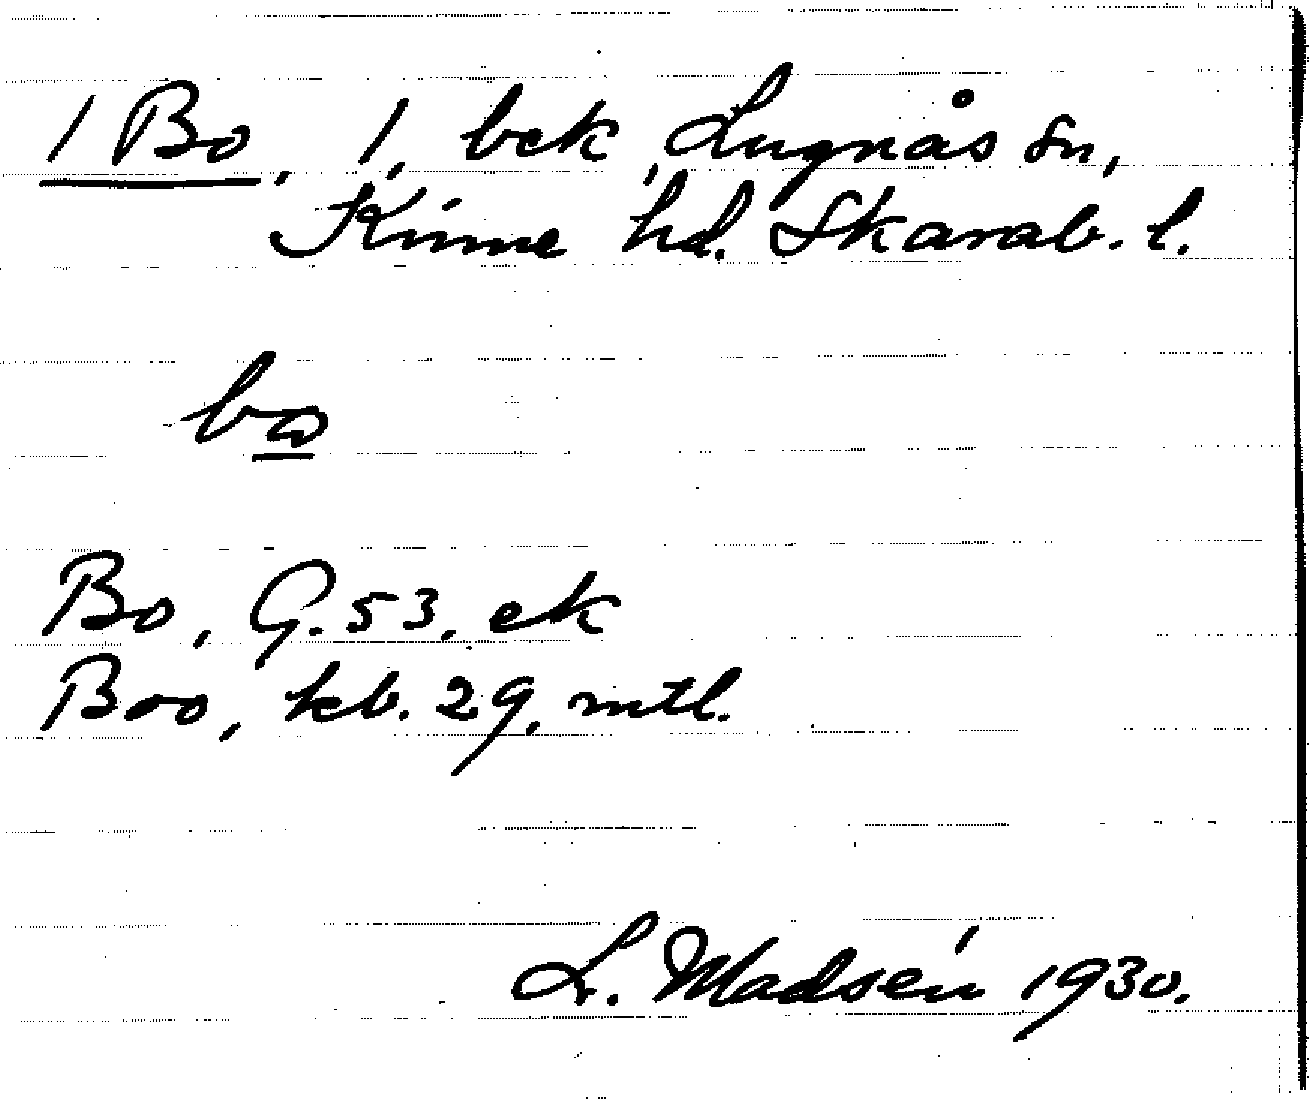 1 Bo, 1, bek, Lugnås sn,
Kinne hd. Skarab. l.
bo
Bo, G. 53, ek
Boo, kb. 29, mtl.
L. Madsén 1930.